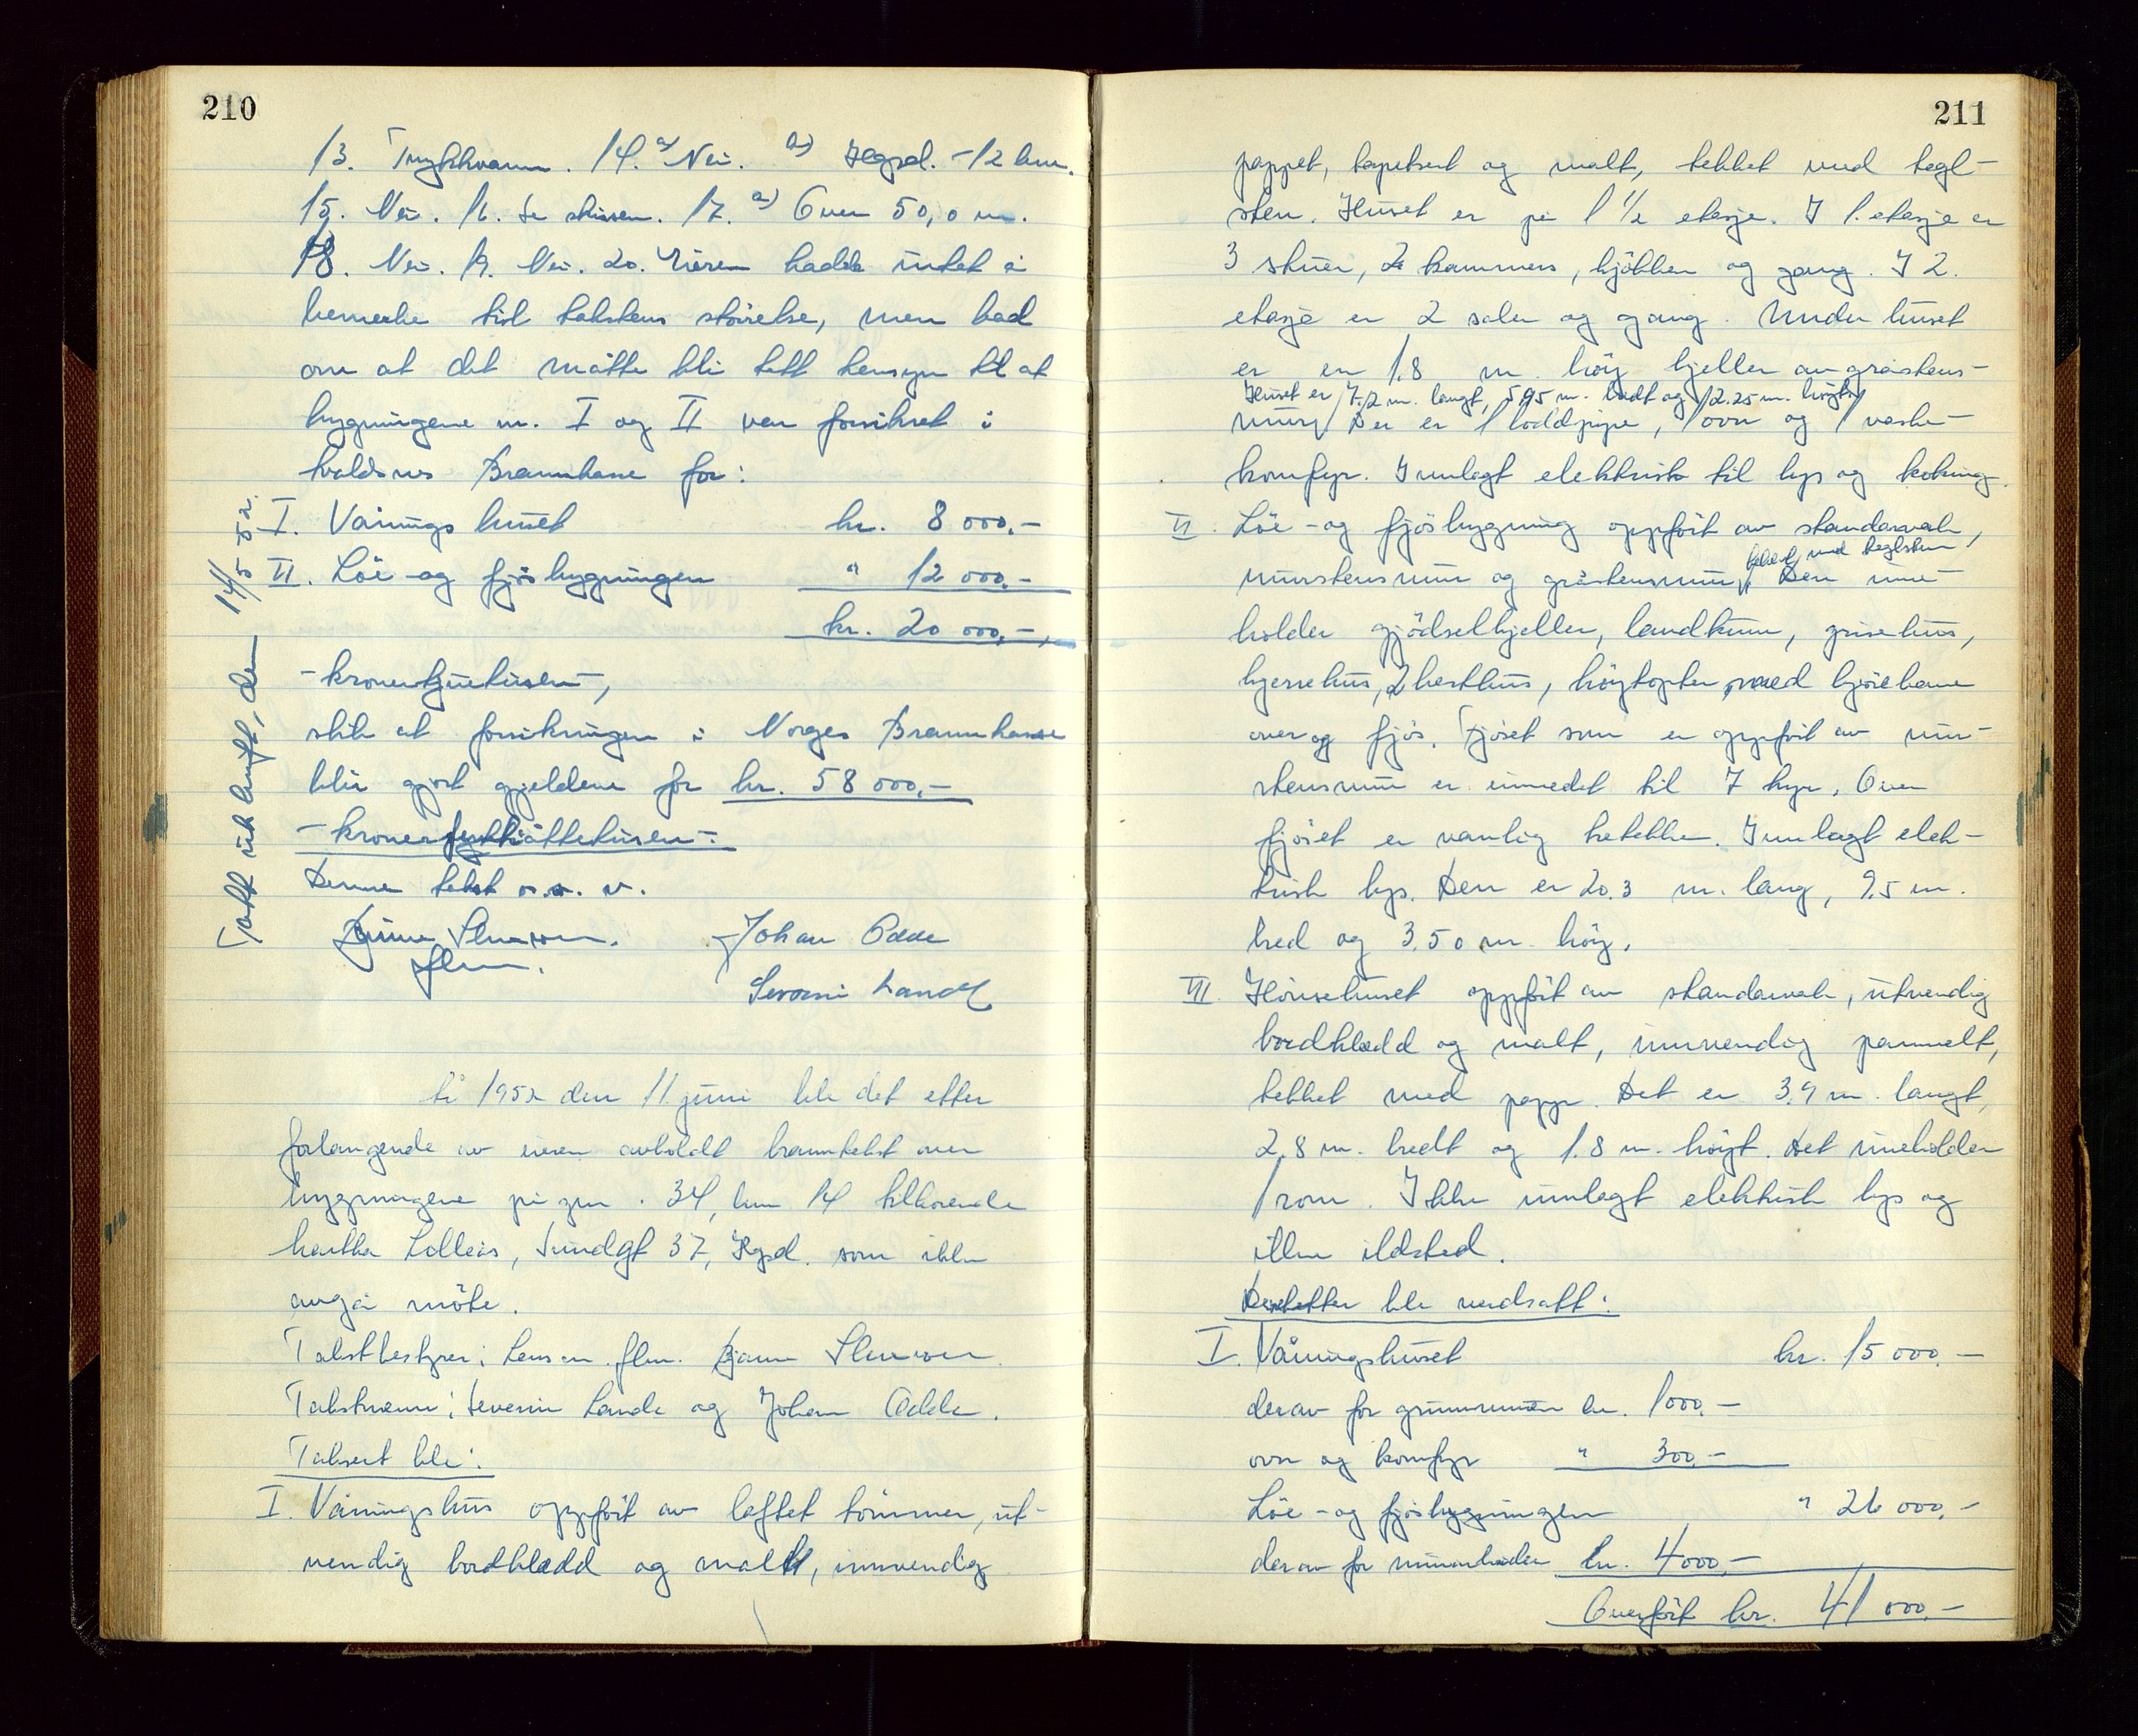 210
13. Trykkvann. 14. a) Nei. b) Hgsd. - 12 km.
15. Nei. 16. Se skissen. 17. a) Over 50,0 m.
18. Nei. 19. Nei. 20. Eieren hadde intet å
bemerke til takstens størrelse, men bad
om at det måtte bli tatt hensyn til at
bygningene nr. I og II var forsikret i
Avaldsnes Brannkasse for:
I. Våningshuset kr. 8 000,-
II. Löe-og fjösbygningen " 12 000,-
kr. 20 000,-,
- kronertjuetusen -,
slik at forsikringen i Norges Brannkasse
blir gjort gjeldene for kr. 58 000,-
- kronerfemtiåttetusen -.
Denne takst o.s.v.
Bjarne Johan Odde
flm. Severin Lande
Takst utskrift, den 14/5-52.
År 1952 den 11 juni ble det etter
forlangende av eieren avholdt branntakst over
bygningene på gnr. 34, bnr 14 tilhörende
Lillesås, Sundgt 37, Hgsd. som ikke
avga möte.
Takstbestyrer: Lensm. flm. Bjarne
Takstmenn: Severin Lande og Johan Odde.
Taksert ble:
I. Våningshus oppfört av laftet tömmer, ut-
vendig bordkledd og malt, innvendig
211
pappet, tapetsert og malt, tekket med tegl-
sten. Huset er på 1 1/2 etasje. I 1. etasje er
3 stuer, 2 kammers, kjökken og gang. I 2.
etasje er 2 saler og gang. Under huset
er en 1,8 m. höy kjeller av gråstens-
Huset er 7,2 m. langt, 5,95 m. bredt og 2.25 m. höyt.
mur. Der er 1 loddpipe, 1 ovn og 1 vaske-
komfyr. Innlagt elektrisk til lys og koking.
II. Löe-og fjösbygning oppfört av standerverk,
tekket med teglsten
murstensmur og gråstensmur, Den inne-
holder gjödselkjeller, landkum, grisehus,
kjerrehus, 2 hesthus, höytopter med kjörebane
over og fjös. Fjöset som er oppfört av mur-
stensmur er innredet til 7 kyr. Over
fjöset er vanlig tretekke. Innlagt elek-
trisk lys. Den er 20.3 m. lang, 9.5 m.
bred og 3.50 m. höy.
III. Hönsehuset oppfört av standerverk, utvendig
bordkledd og malt, innvendig pannelt,
tekket med papp. Det er 3.9 m. langt,
2.8 m. bredt og 1.8 m. höyt. Det inneholder
1 rom. Ikke innlagt elektrisk lys og
ikke ildsted.
Deretter ble verdsatt:
I. Våningshuset kr. 15 000,-
derav for grunnmuren kr. 1000,-
ovn og komfyr " 300,-
Löe-og fjösbygningen " 26 000,-
derav for murarbeider kr. 4000,-
Overfört kr. 41 000,-